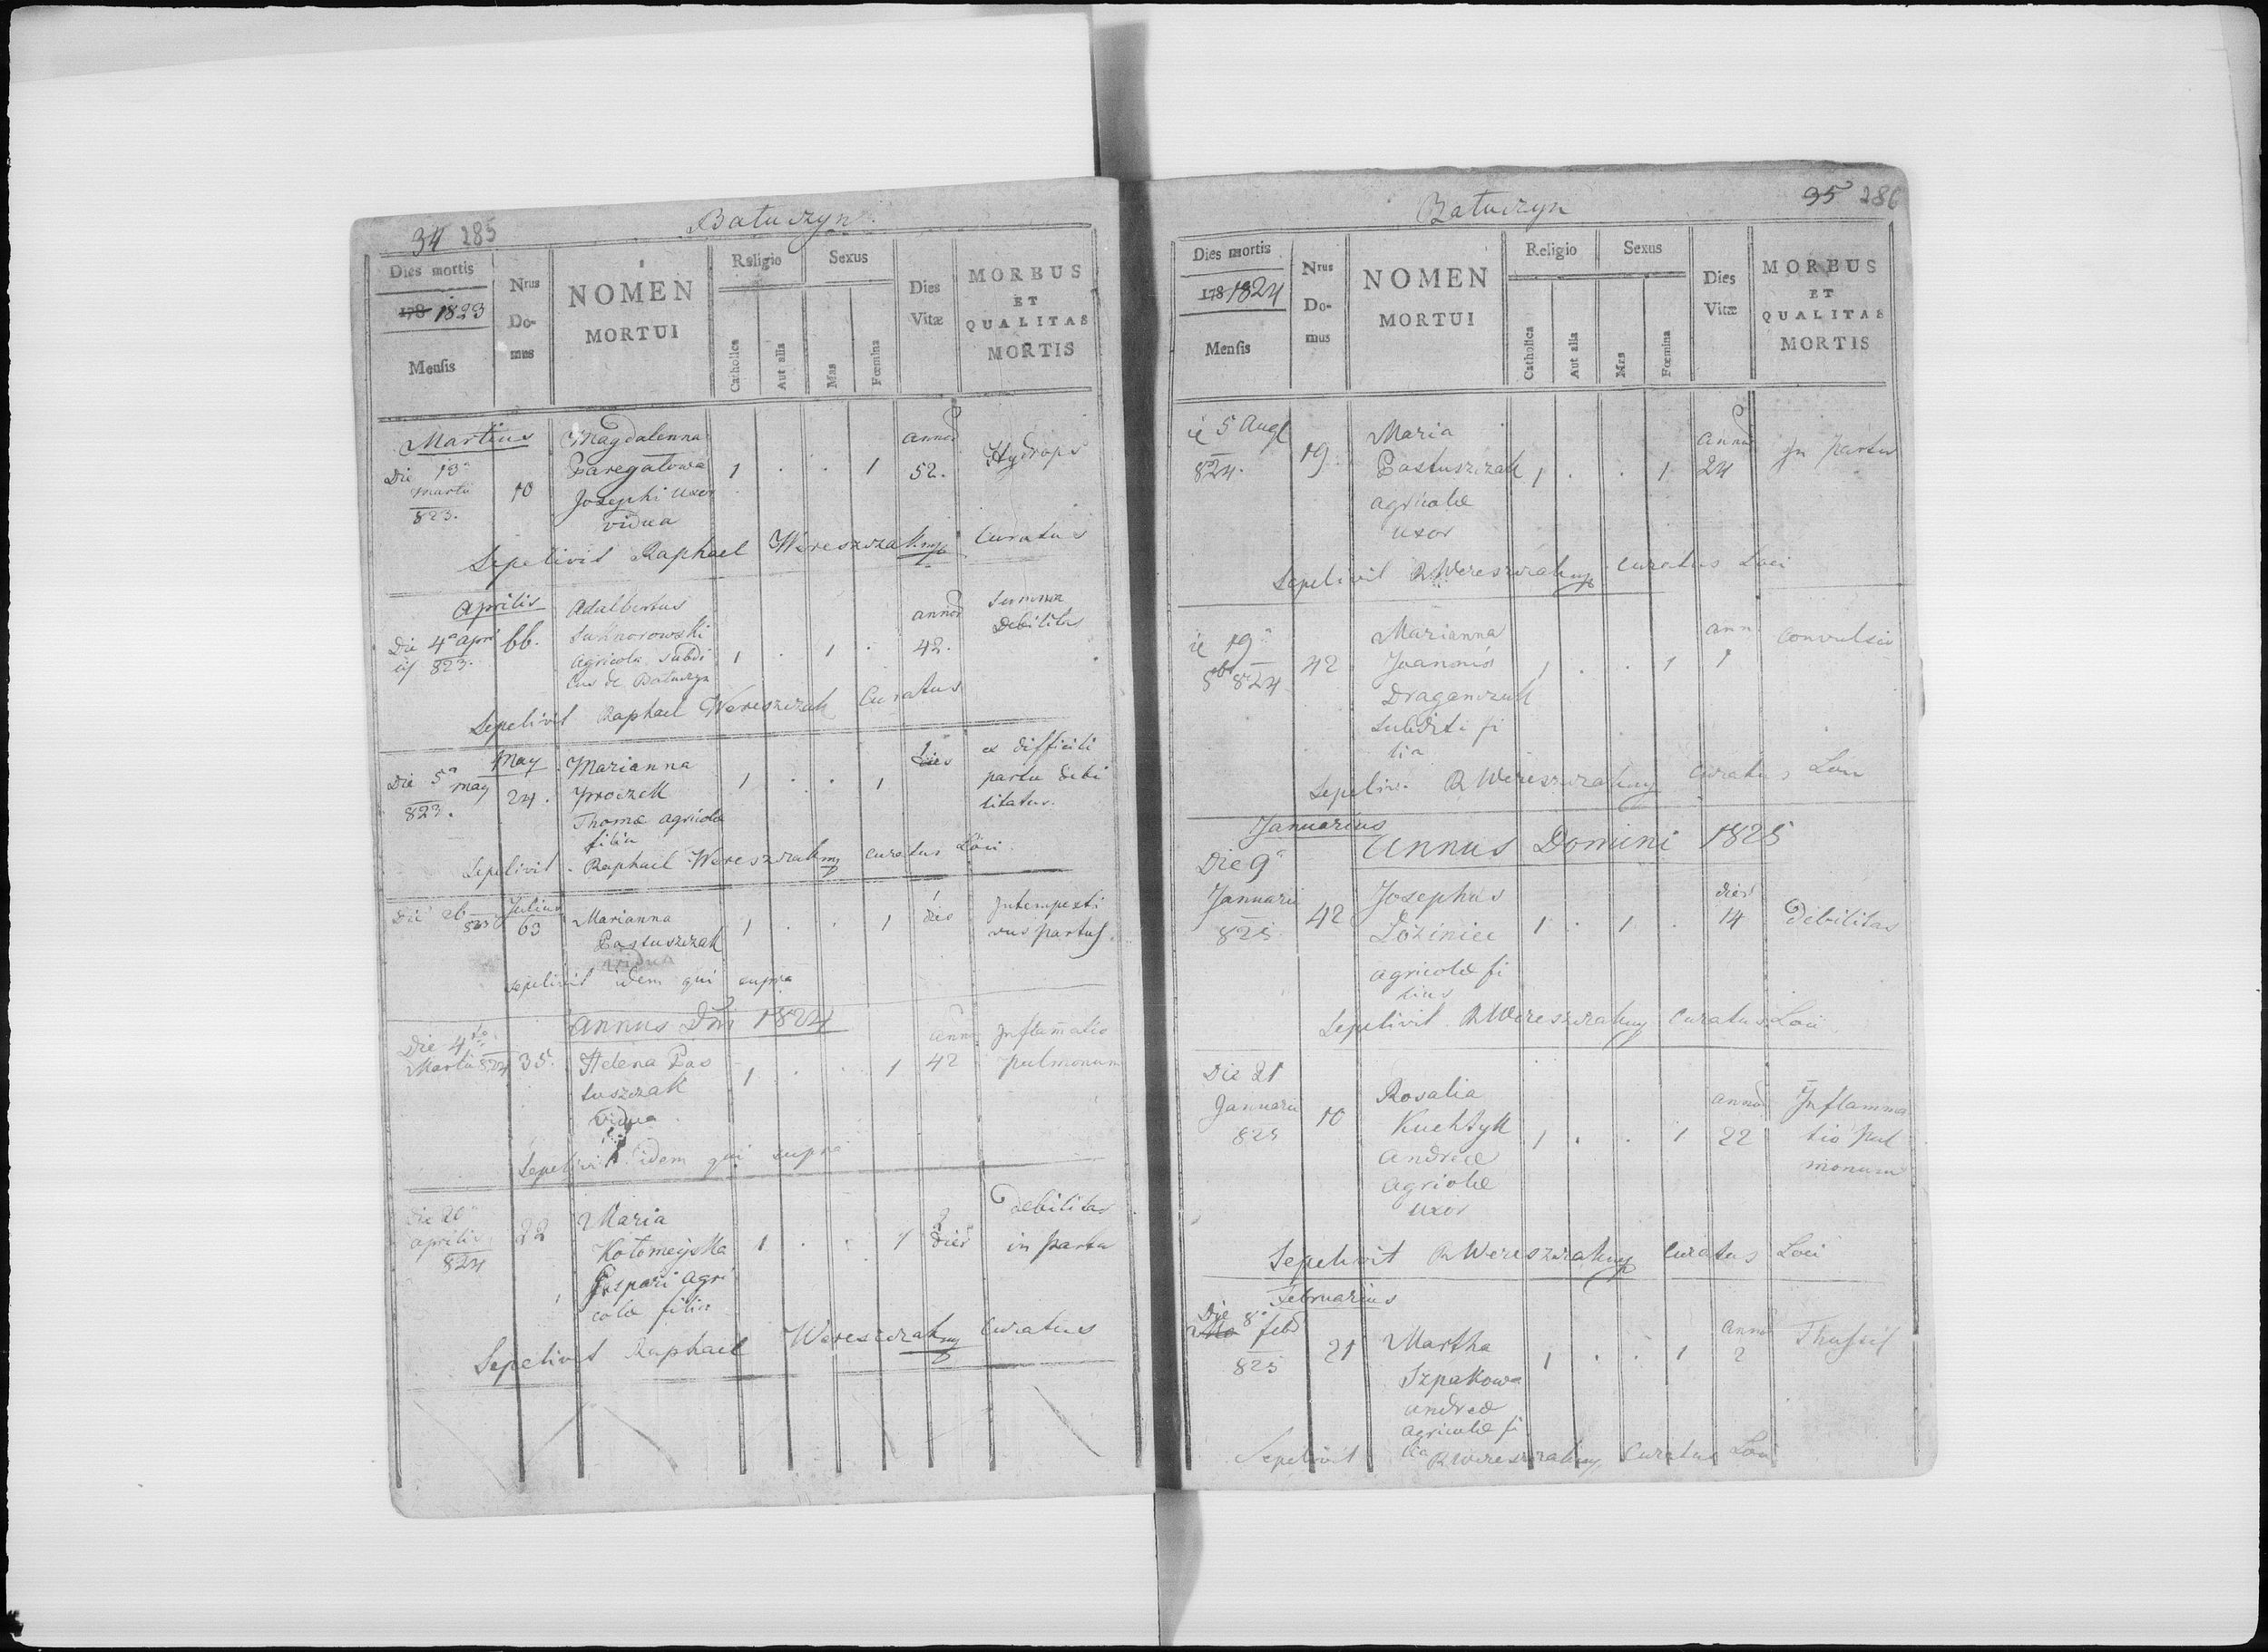 34 285
Batuczyn
Dies mortis
178 1823
Mensis
Nrus Do- mus
NOMEN
MORTUI
Religio
Catholica
Aut alia
Sexus
Mas
Fœmina
Dies
Vitæ
MORBUS
ET
QUALITAS
MORTIS
Martius
Die 13a
Martii
823.
10
Magdalenna
Paregatowa
Josephi uxor
vidua
1 . . 1
annos
52.
Hydrops
Sepelivit Raphael Wereszczak mp Curatus
Aprilis
Die 4a apri
lis 823.
66.
Adalbertus
Suknorowski
agricola subdi
tus de Batuczyn
1 . 1 .
annos
42.
summa
Debilitas
Sepelivit Raphael Wereszczak Curatus
May
Die 5a may
823.
24.
Marianna
Thomæ agricolæ
filia
1 . . 1
1
Dies
ex difficili
partu debi
litatus.
Sepelivit Raphael Wereszczak mp curatus Loci
Julius
Die 26
823
63
Marianna
Pastuszczak
vidua
1 . . 1
1
dies
Intempesti
vus partus
sepelivit idem qui supra
annus Dni 1824
Die 4to
Martii 824
35.
Helena Pas
tuszczak
vidua
1 . . 1
anno
42
Inflamatio
pulmonum
Sepelivit idem qui supra
Die 20
aprilis
824
22
Maria
Kołomeyska
Gaspari agri
colæ filia
1 . . 1
2
dies
Debilitas
in partu
Sepelivit Raphael Wereszczak mp Curatus
35 286
Batuczyn
Dies mortis
178 1824
Mensis
Nrus Do- mus
NOMEN
MORTUI
Religio
Catholica
Aut alia
Sexus
Mas
Fœmina
Dies
Vitæ
MORBUS
ET
QUALITAS
MORTIS
ie 5 Aug
824.
19
Maria
Pastuszczak
agricolæ
uxor
1 . . 1
annos
24
In partu
Sepelivit R Wereszczak mp Curatus Loci
ie 19a
8bris 824
42
Marianna
Joannis
Draganczuk
subditi fi
lia
1 . . 1
ann
1
Convulsio
Sepeliv. R Wereszczak mp Curatus Loci
Januarius
Annus Domini 1825
Die 9a
Januarii
825
42
Josephus
Łoziniec
agricolæ fi
lius
1 . 1 .
dies
14
Debilitas
Sepelivit R Wereszczak mp Curatus Loci
Die 21
Januarii
825
10
Rosalia
Kuchtyk
Andreæ
agricolæ
uxor
1 . . 1
annos
22
Inflamma
tio pul
monum
Sepelivit R Wereszczak mp Curatus Loci
Februarius
Die 8a feb
825
21
Martha
Szpakowa
Andreæ
agricolæ fi
lia
1 . . 1
anno
2
Thussis
Sepelivit R Wereszczak mp Curatus Loci